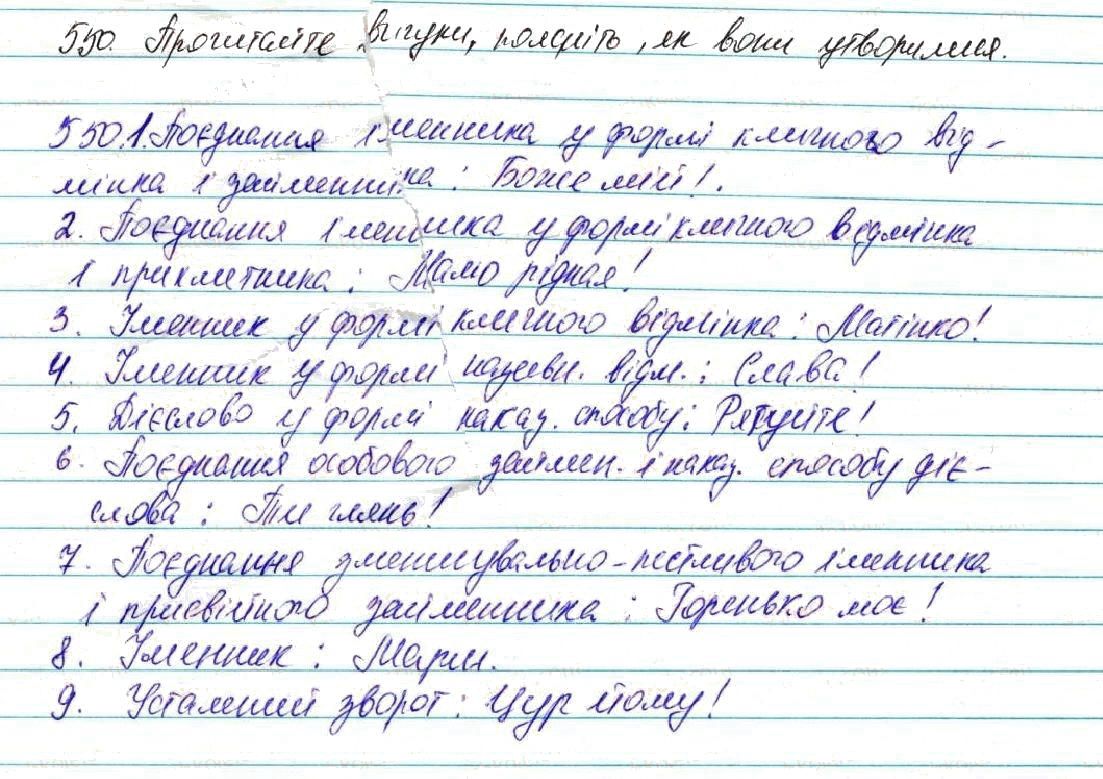 550. Прочитайте вигуки, поясніть, як вони утворилися.
550.1. Поєднання іменника у формі кличного від-
мінка і займенника: Боже мій!.
2. Поєднання іменника у формі кличного відмінка
і прикметника: Мамо рідная!
3. Іменник у формі кличного відмінка: Матінко!
4. Іменник у формі назывн. відм.: Слава!
5. Дієслово у формі наказ. способу: Рятуйте!
6. Поєднання особового займен. і наказ. способу діє-
слова: Ти глянь!
7. Поєднання зменшувально-пестливого іменника
і присвійного займенника: Горенько моє!
8. Іменник: Марш.
9. Усталений зворот: Цур йому!